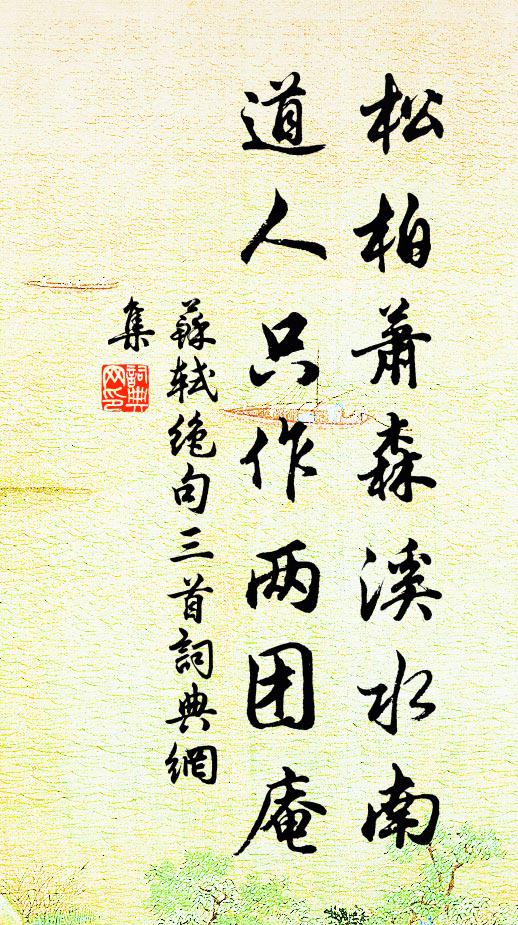 松柏萧森溪水南
道人只作两团庵
蘇轼绝句三首詞典網
集
詞典网印